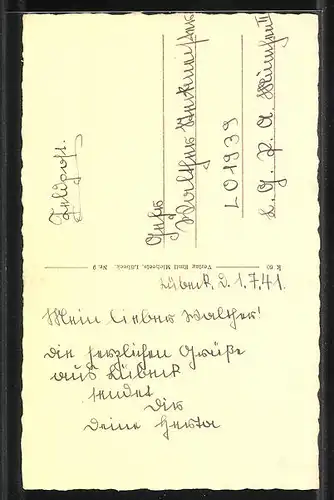 Feldpost.
Gefr.
Walther
L 01939
L. G. P. A. München II
K 60 Verlag Emil Michaels, Lübeck. Nr. 9
Lübeck, d. 1.7.41.
Mein lieber Walther!
die herzlichen Grüße
aus Lübeck
sendet
Dir
Deine Herta